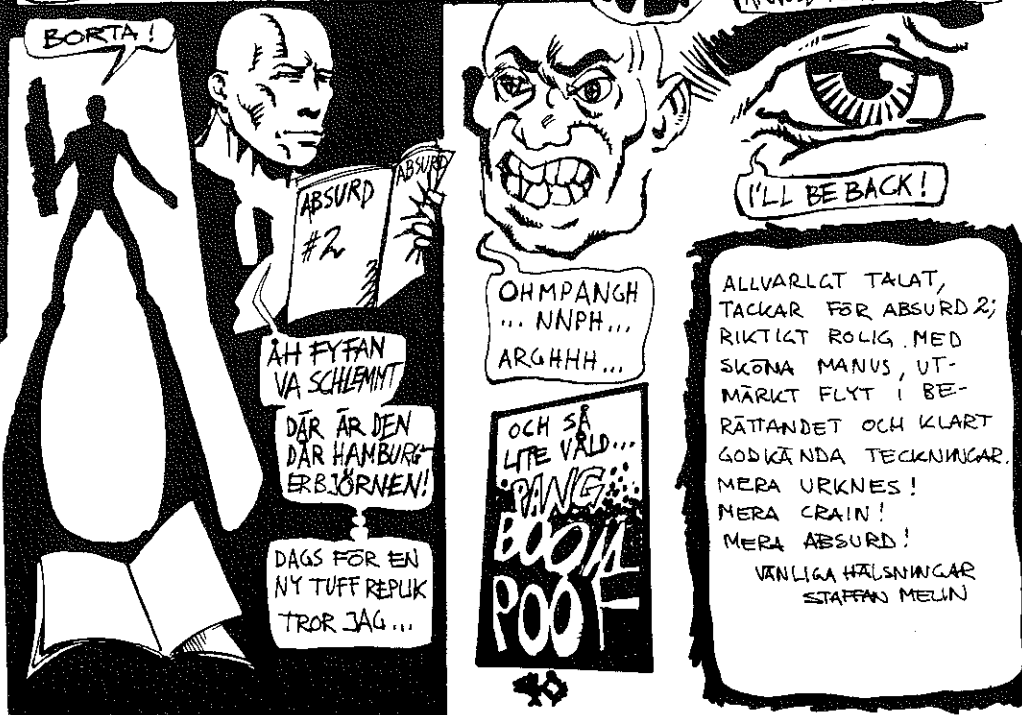 BORTA!
ABSURD
#2
ABSURD
ÅH FYFAN
VA SCHLEMMT
DÄR ÄR DEN
DÄR HAMBURG-
ERBJÖRNEN!
DAGS FÖR EN
NY TUFF REPLIK
TROR JAG...
OHMPANGH
... NNPH...
ARGHHH...
OCH SÅ
LITE VÅLD...
PANG
BOOM
POOF
I'LL BE BACK!
ALLVARLGT TALAT,
TACKAR FÖR ABSURD 2;
RIKTIGT ROLIG. MED
SKÖNA MANUS, UT-
MÄRKT FLYT I BE-
RÄTTANDET OCH KLART
GODKÄNDA TECKNINGAR.
MERA URKNES!
MERA CRAIN!
MERA ABSURD!
VÄNLIGA HÄLSNINGAR
STAFFAN MELIN